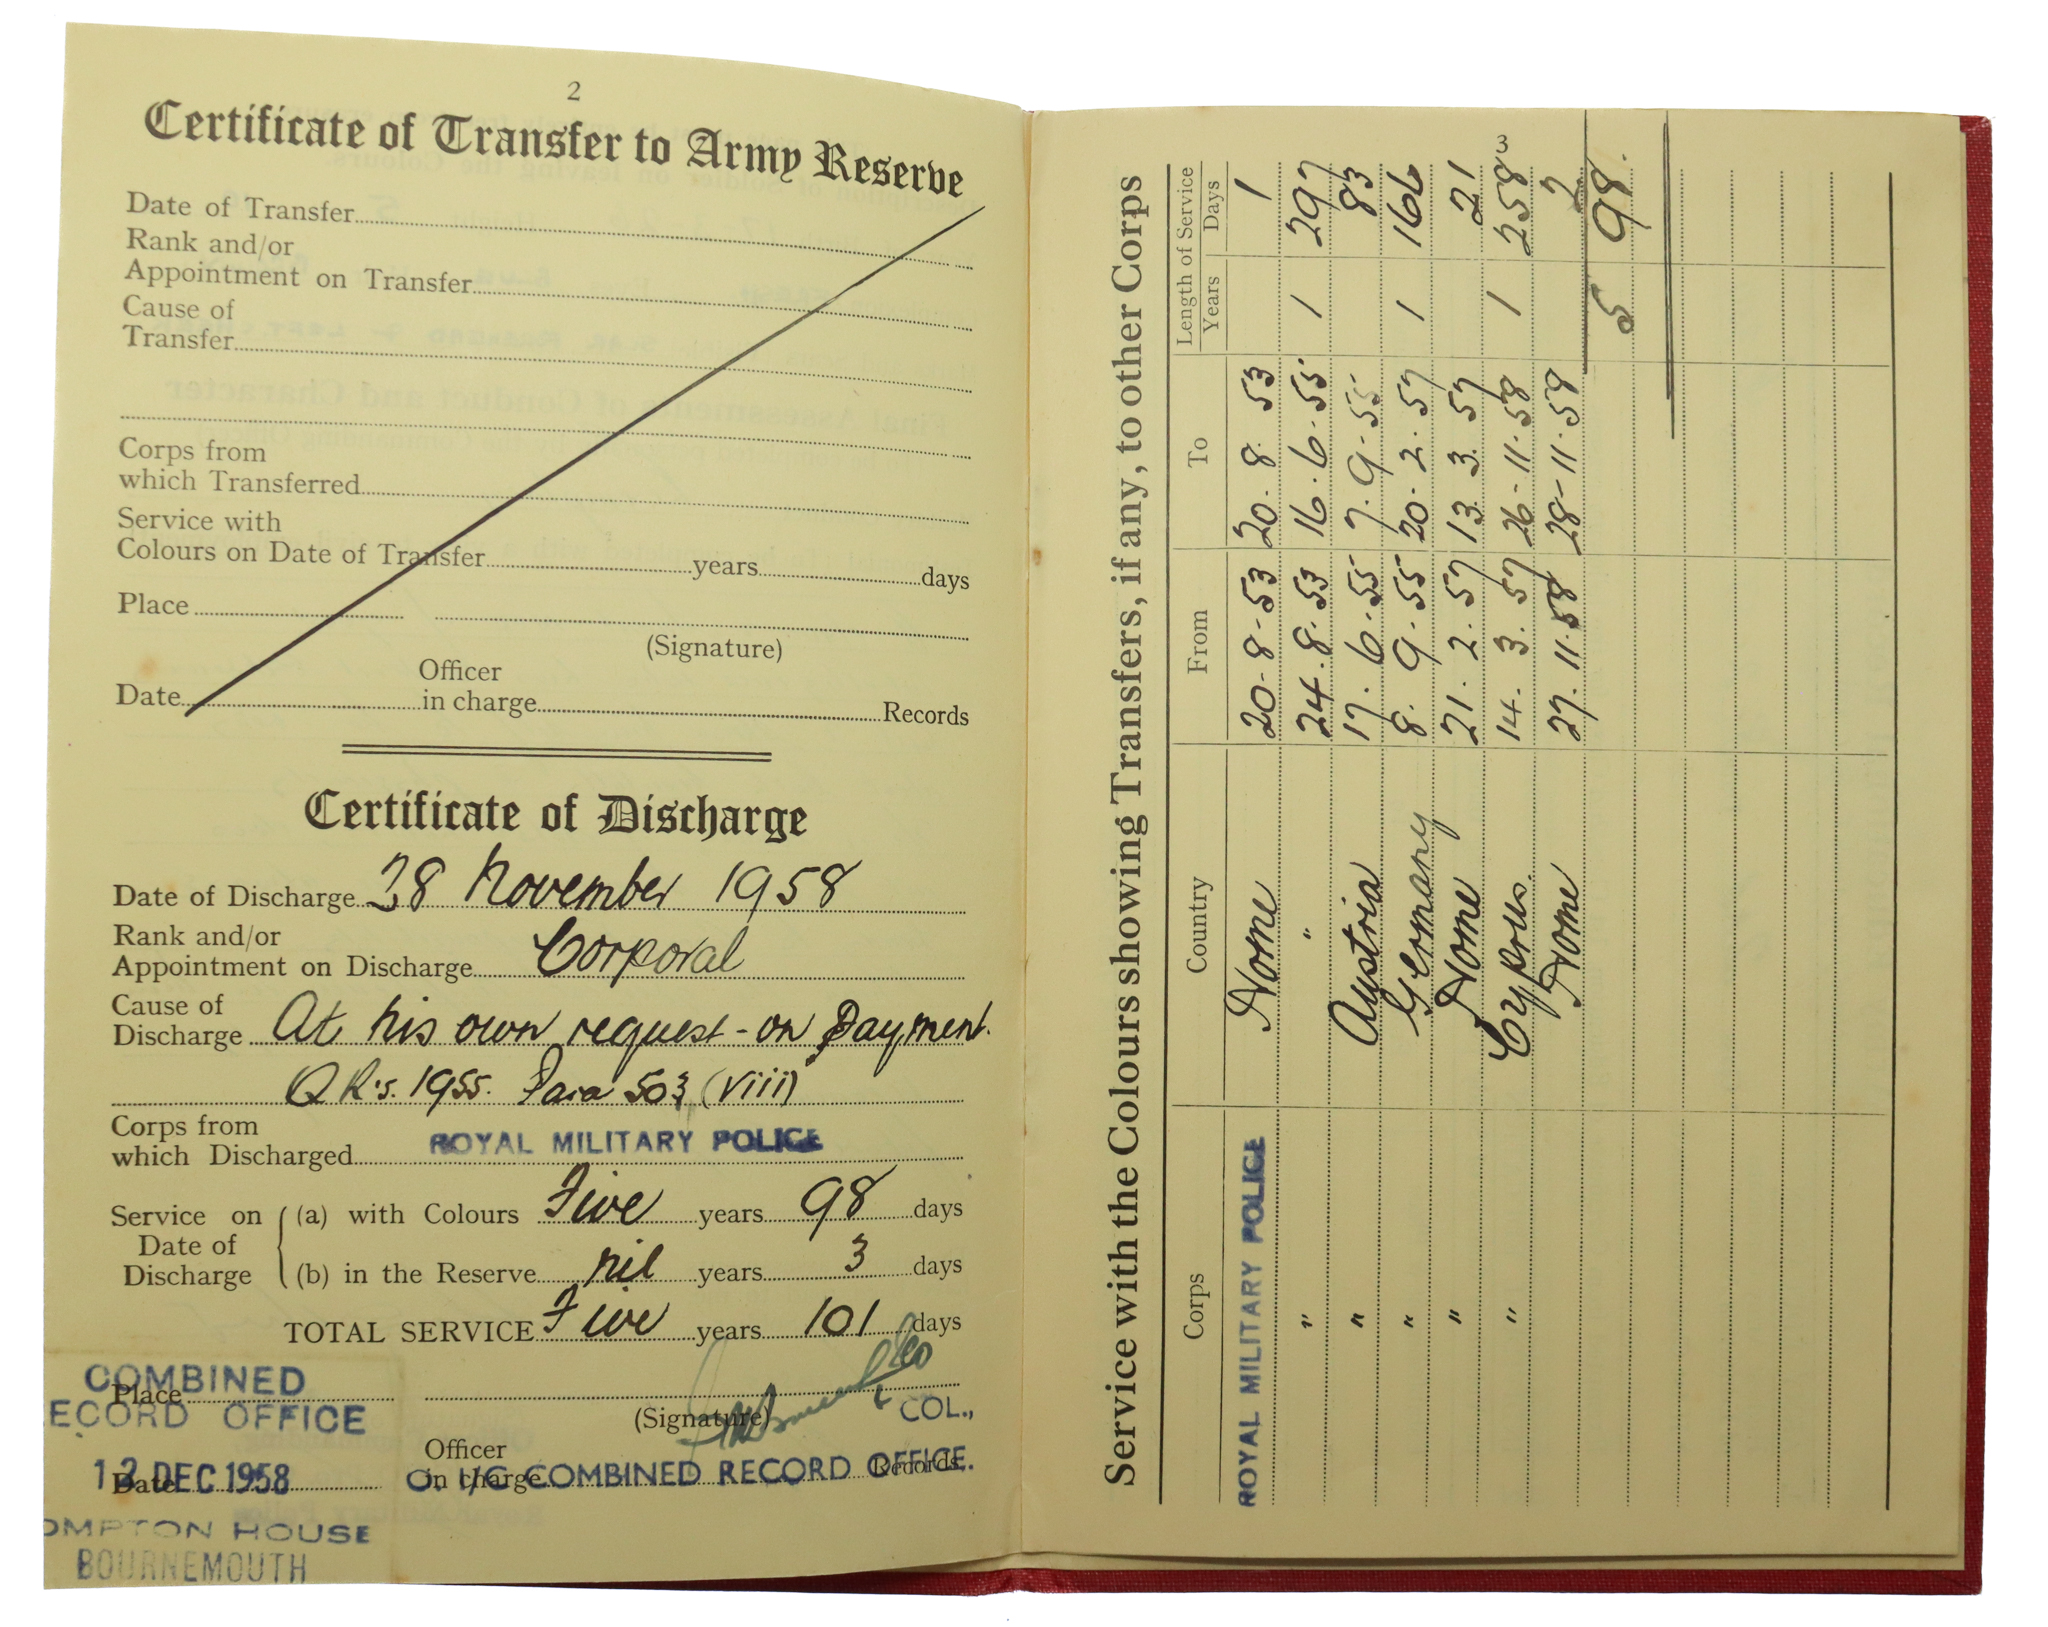 2
Certificate of Transfer to Army Reserve
Date of Transfer
Rank and/or
Appointment on Transfer
Cause of
Transfer
Corps from
which Transferred
Service with
Colours on Date of Transfer years days
Place
(Signature)
Officer
Date in charge Records
Certificate of Discharge
Date of Discharge 28 November 1958
Rank and/or
Appointment on Discharge Corporal
Cause of
Discharge At his own request - on Payment.
QR's. 1955. Para 503 (viii)
Corps from
which Discharged ROYAL MILITARY POLICE
Service on (a) with Colours Five years 98 days
Date of
Discharge (b) in the Reserve nil years 3 days
TOTAL SERVICE Five years 101 days
COMBINED
Place
ECORD OFFICE
(Signature) COL.,
Officer
in charge Records
O. I/C COMBINED RECORD OFFICE.
Date 12 DEC 1958
OMPTON HOUSE
BOURNEMOUTH
3
Service with the Colours showing Transfers, if any, to other Corps
Corps Country From To Length of Service
Years Days
ROYAL MILITARY POLICE Home 20-8-53 20.8.53 1
" " 24.8.53 16.6.55 1 297
" Austria 17.6.55 7.9.55 83
" Germany 8.9.55 20.2.57 1 166
" Home 21.2.57 13.3.57 21
" Cyprus. 14.3.57 26-11-58 1 258
Home 27.11.58 28-11-58 2
5 98.